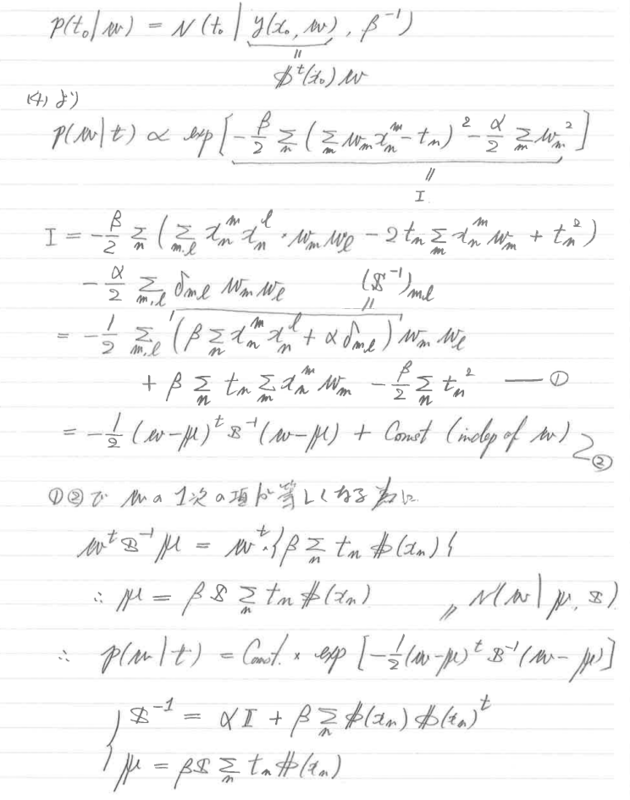 p(t₀|𝕨) = N(t₀ | y(x₀, 𝕨), β⁻¹)
〃
𝜙ᵗ(x₀)𝕨
(4) より
p(𝕨|t) ∝ exp[-β/2 Σₙ(Σₘ wₘxₙᵐ - tₙ)² - α/2 Σₘ wₘ²]
〃
I
I = -β/2 Σₙ(Σₘ,ₗ xₙᵐxₙˡ・wₘwₗ - 2tₙ Σₘ xₙᵐwₘ + tₙ²)
- α/2 Σₘ,ₗ δₘₗ wₘwₗ (𝕊⁻¹)ₘₗ
〃
= -1/2 Σₘ,ₗ (β Σₙ xₙᵐxₙˡ + αδₘₗ) wₘwₗ
+ β Σₙ tₙ Σₘ xₙᵐwₘ - β/2 Σₙ tₙ² — ①
= -1/2 (𝕨-𝝁)ᵗ 𝕊⁻¹(𝕨-𝝁) + Const (indep of 𝕨) ②
①②で 𝕨の1次の項が等しくなる為に
𝕨ᵗ𝕊⁻¹𝝁 = 𝕨ᵗ・{β Σₙ tₙ𝜙(xₙ)}
∴ 𝝁 = β𝕊 Σₙ tₙ𝜙(xₙ) 〃 N(𝕨|𝝁, 𝕊)
∴ p(𝕨|t) = Const. × exp[-1/2(𝕨-𝝁)ᵗ 𝕊⁻¹(𝕨-𝝁)]
{ 𝕊⁻¹ = α𝕀 + β Σₙ 𝜙(xₙ)𝜙(xₙ)ᵗ
𝝁 = β𝕊 Σₙ tₙ𝜙(xₙ)